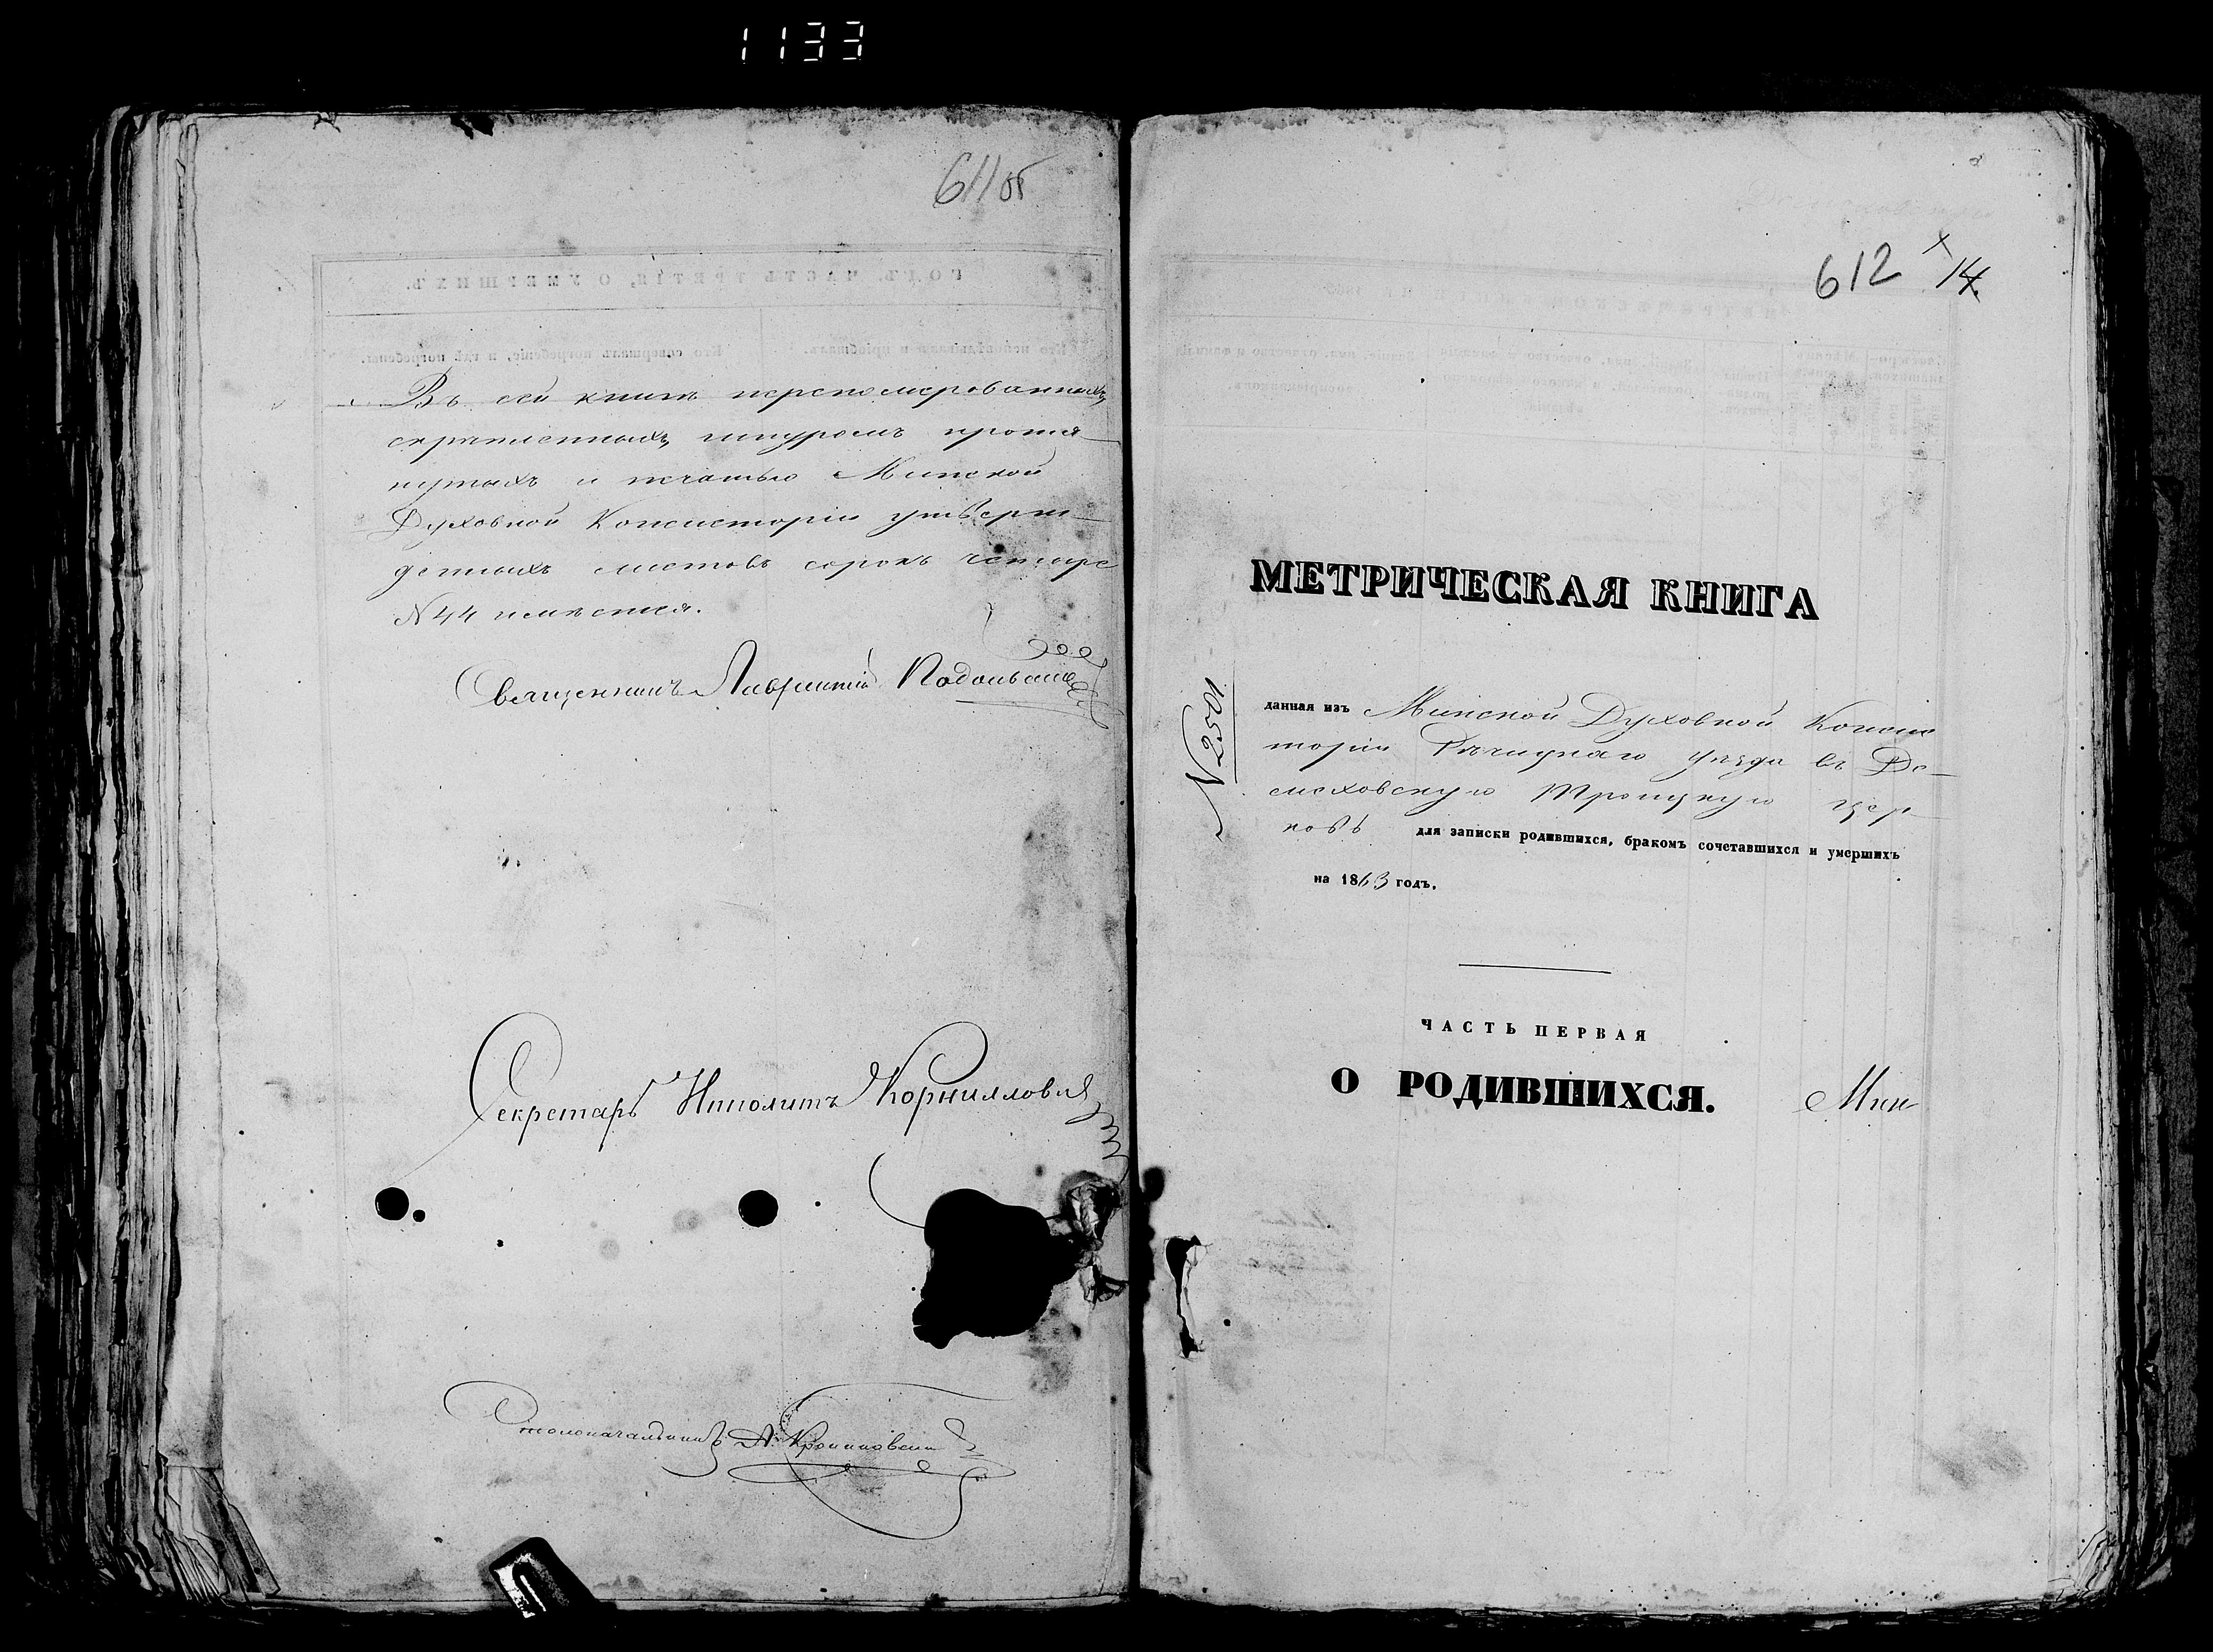 1133
611 об
Въ сей книгѣ перенумерованныхъ,
скрѣпленныхъ, шнуромъ протя-
нутыхъ и печатью Минской
Духовной Консисторіи утверж-
денныхъ листовъ сорокъ четыре
№ 44 имѣется.
Священникъ Лаврентій
Секретарь Ипполитъ
Столоначальникъ А.
612 14
МЕТРИЧЕСКАЯ КНИГА
№ 2501
данная изъ Минской Духовной Консис
торіи Рѣчицкаго уѣзда въ Де-
меховскую Троицкую цер-
ковь для записки родившихся, бракомъ сочетавшихся и умершихъ
на 1863 годъ.
ЧАСТЬ ПЕРВАЯ
О РОДИВШИХСЯ.
Мин